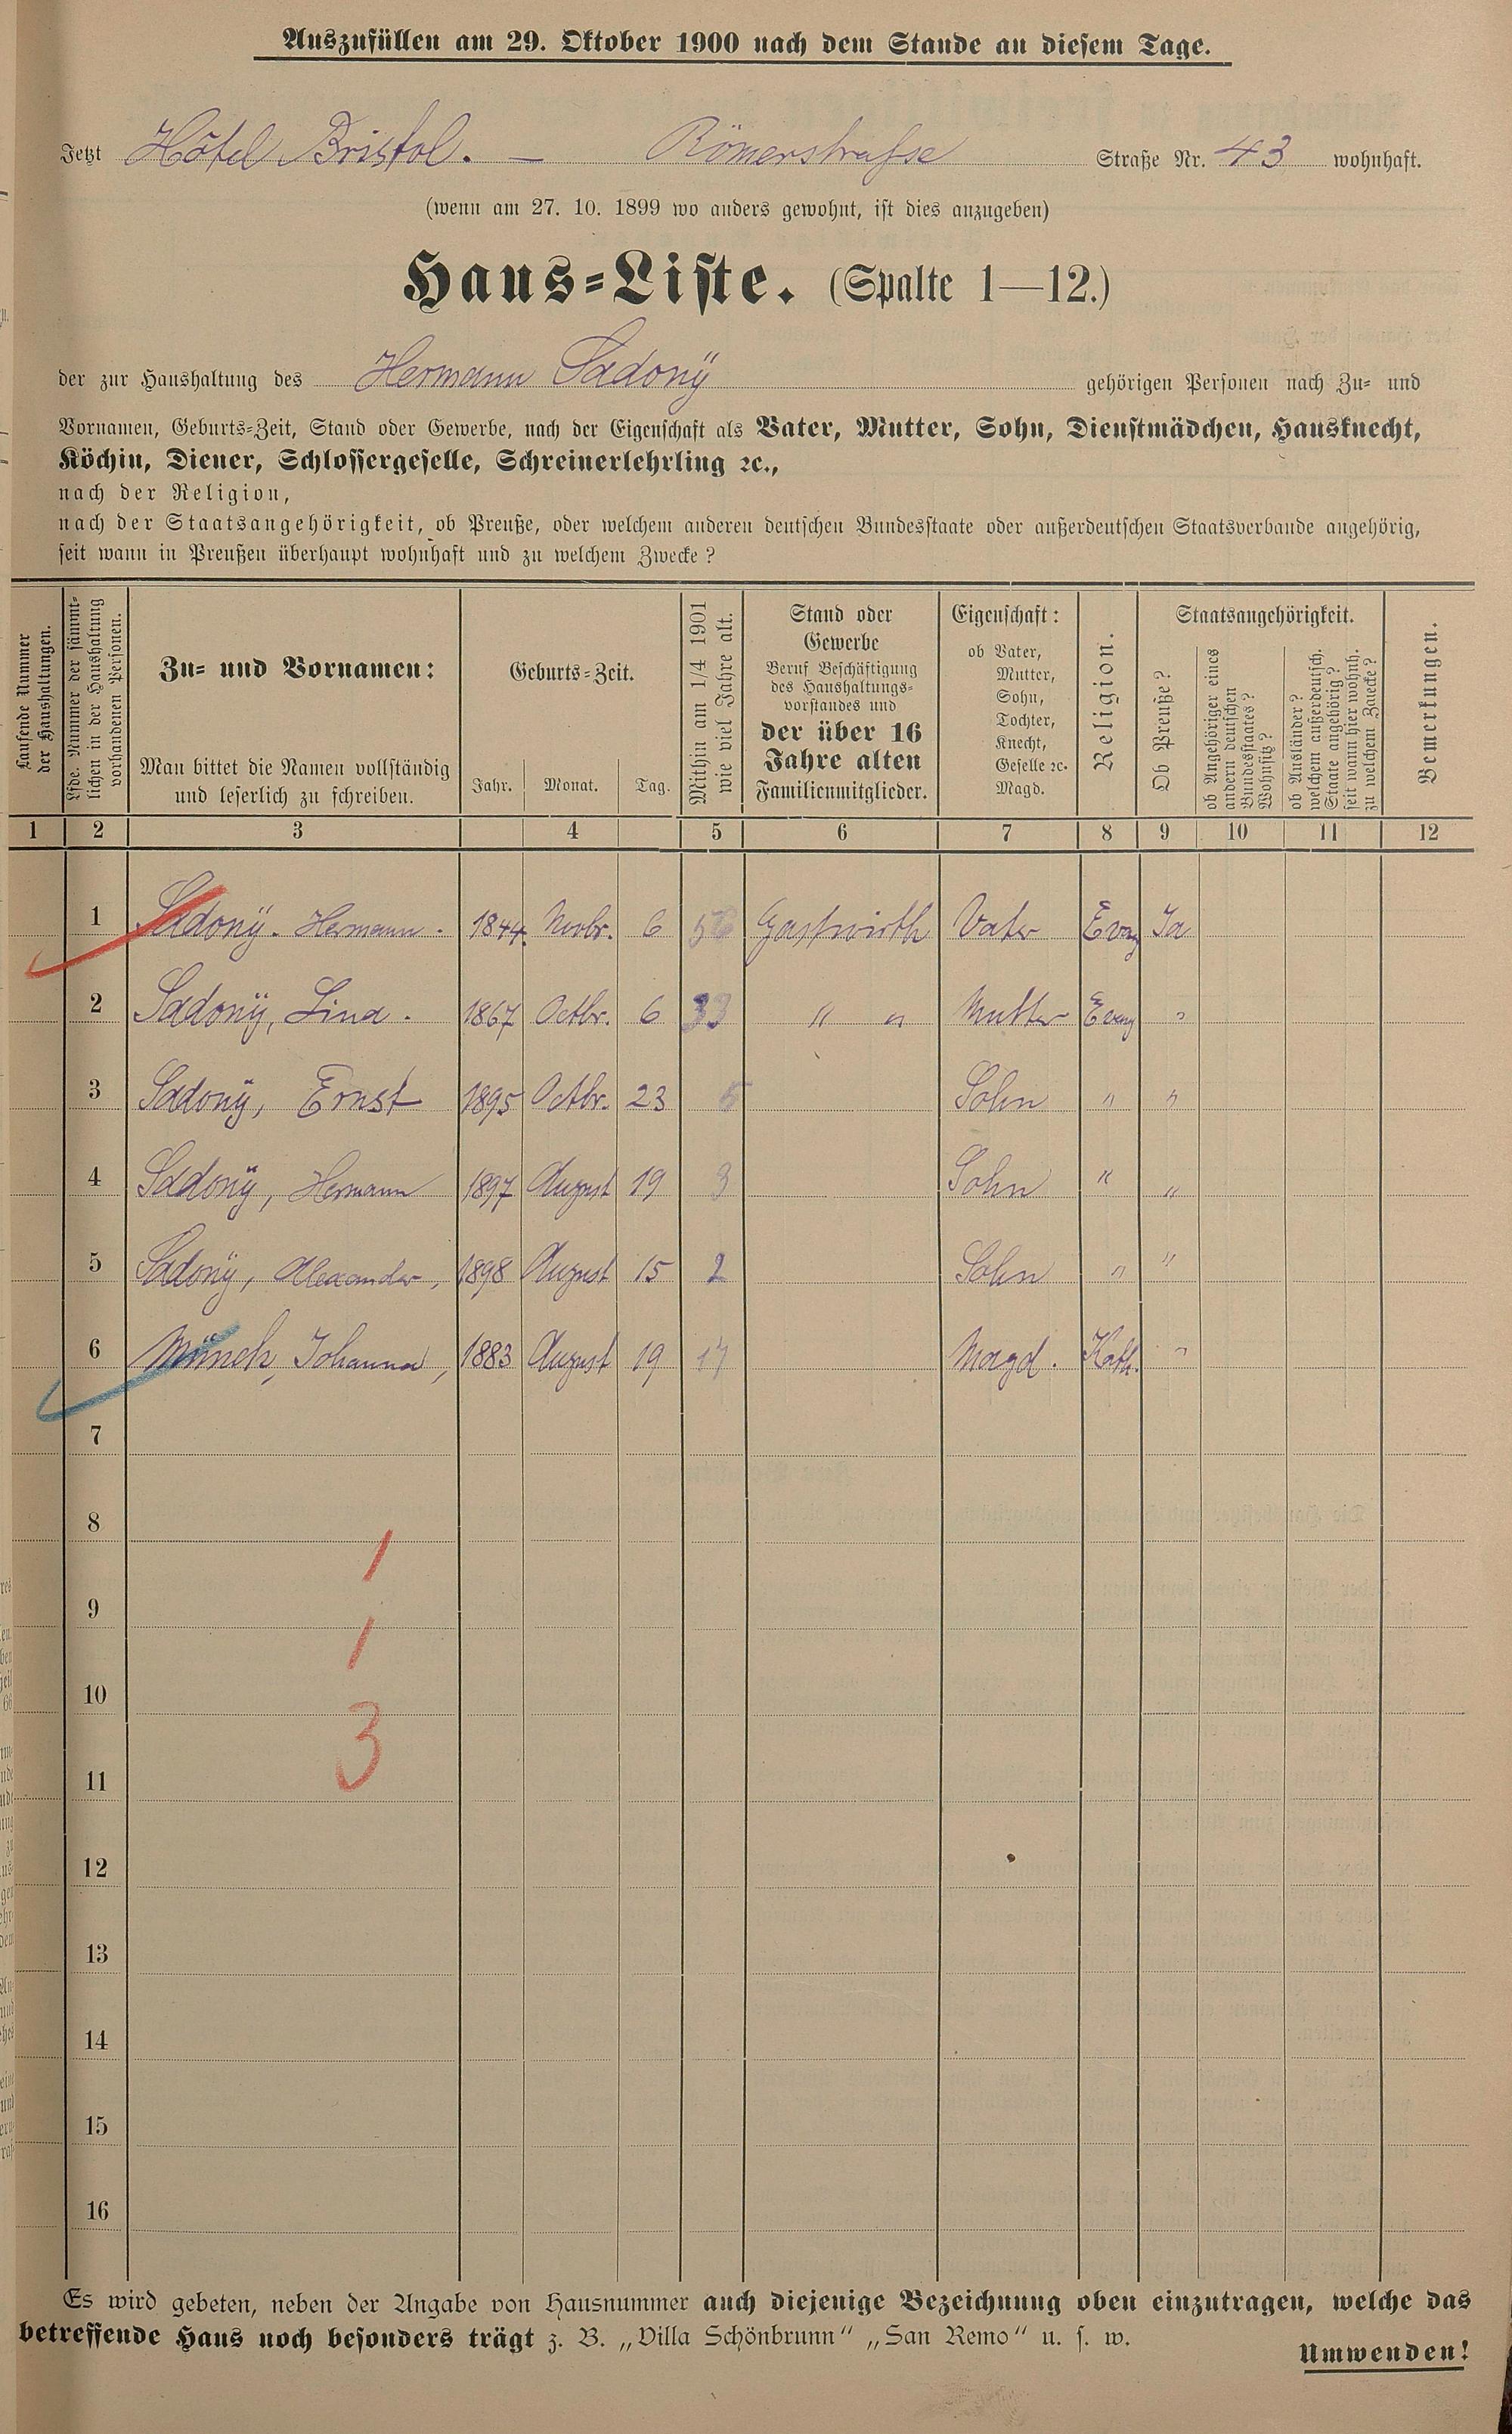 Auszufüllen am 29. Oktober 1900 nach dem Stande an diesem Tage.
Jetzt Hôtel Bristol. — Römerstrafse Straße Nr. 43 wohnhaft.
(wenn am 27. 10. 1899 wo anders gewohnt, ist dies anzugeben)
Haus-Liste. (Spalte 1—12.)
der zur Haushaltung des Hermann Sadonÿ gehörigen Personen nach Zu- und
Vornamen, Geburts-Zeit, Stand oder Gewerbe, nach der Eigenschaft als Vater, Mutter, Sohn, Dienstmädchen, Hausknecht,
Köchin, Diener, Schlossergeselle, Schreinerlehrling ꝛc.,
nach der Religion,
nach der Staatsangehörigkeit, ob Preuße, oder welchem anderen deutschen Bundesstaate oder außerdeutschen Staatsverbande angehörig,
seit wann in Preußen überhaupt wohnhaft und zu welchem Zwecke?
Laufende Nummer
der Haushaltungen.
Lfde. Nummer der sämmt-
lichen in der Haushaltung
vorhandenen Personen.
Zu- und Vornamen:
Man bittet die Namen vollständig
und leserlich zu schreiben.
Geburts-Zeit.
Jahr. Monat. Tag.
Mithin am 1/4 1901
wie viel Jahre alt.
Stand oder
Gewerbe
Beruf Beschäftigung
des Haushaltungs-
vorstandes und
der über 16
Jahre alten
Familienmitglieder.
Eigenschaft:
ob Vater,
Mutter,
Sohn,
Tochter,
Knecht,
Geselle ꝛc.
Magd.
Religion.
Staatsangehörigkeit.
Ob Preuße?
ob Angehöriger eines
andern deutschen
Bundesstaates?
Wohnsitz?
ob Ausländer?
welchem außerdeutsch.
Staate angehörig?
seit wann hier wohnh.
zu welchem Zwecke?
Bemerkungen.
1 2 3 4 5 6 7 8 9 10 11 12
1 Sadonÿ. Hermann. 1844. Novbr. 6 56 Gastwirth Vater Evag Ja
2 Sadonÿ, Lina. 1867 Octbr. 6 33 " " Mutter Evang "
3 Sadonÿ, Ernst 1895 Octbr. 23 5 Sohn " "
4 Sadonÿ, Hermann 1897 August 19 3 Sohn " "
5 Sadonÿ, Alexander, 1898 August 15 2 Sohn " "
6 Münch, Johanna, 1883 August 19 17 Magd. Kath. "
7
8
1
9
1
10
3
11
12
13
14
15
16
Es wird gebeten, neben der Angabe von Hausnummer auch diejenige Bezeichnung oben einzutragen, welche das
betreffende Haus noch besonders trägt z. B. „Villa Schönbrunn“ „San Remo“ u. s. w.
Umwenden!